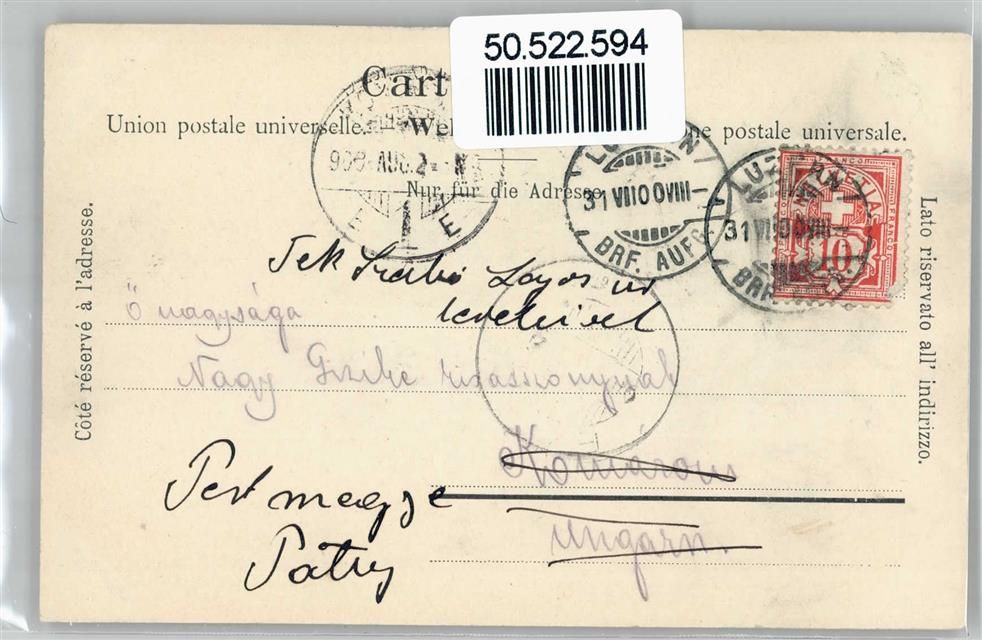 50.522.594
Cart
Union postale universelle. Wel ne postale universale.
Nur für die Adresse.
Côté réservé à l'adresse.
Lato riservato all' indirizzo.
908 AUG. 2 N
LUZERN
31 VII 10 0 VIII
BRF. AUFG.
LUZERN
31 VII 10 0 VIII
BRF.
FRANCO
10
Tek Szabó Lajos úr
levelével
Ő nagysága
Nagy Giszike kisasszonynak
Komárom
Ungarn.
Pest megye
Pátty